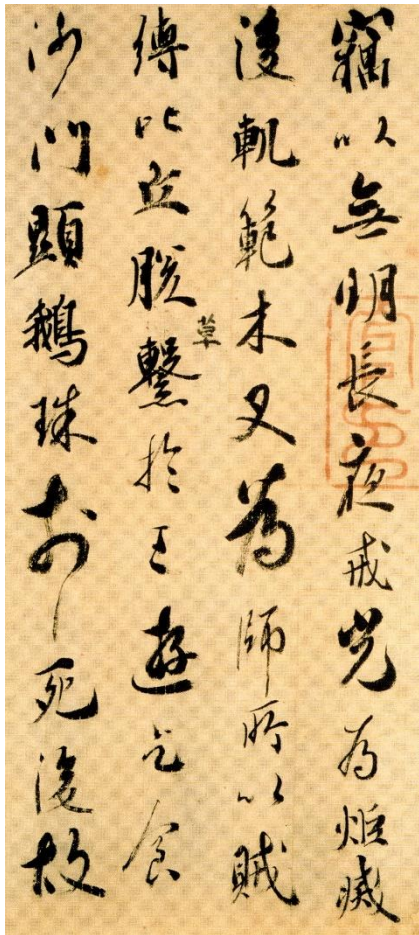 竊以無明長夜戒光為炬滅
後軌範木叉為師所以賊
縛比丘脱繫於王遊乞食
草
沙門顕鵝珠於死後故